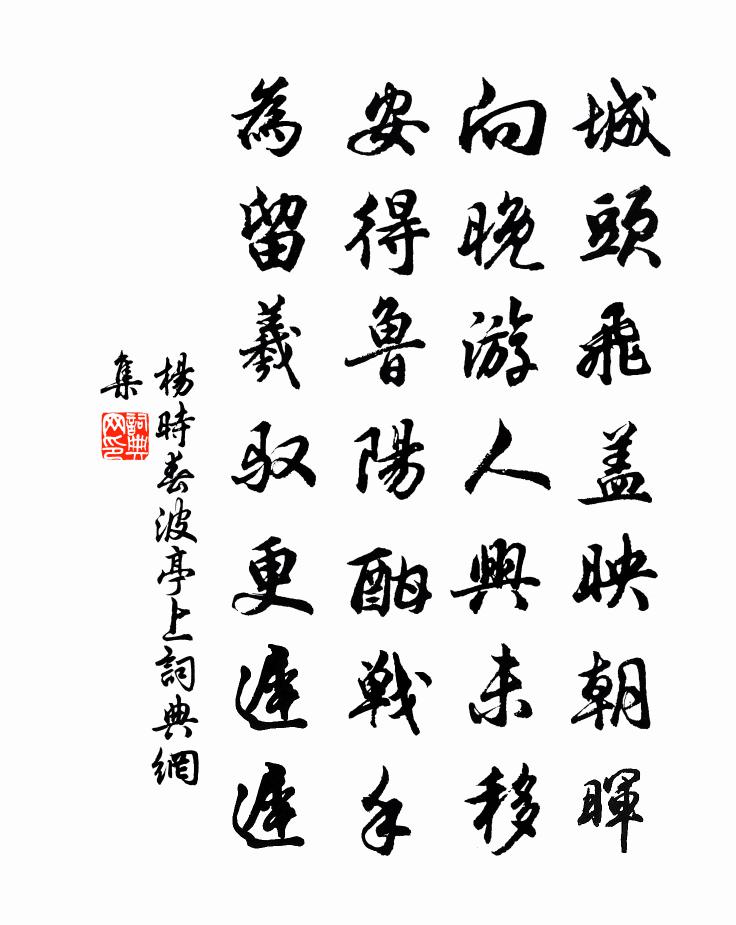 城頭飛盖映朝暉
向晚游人興未移
安得魯陽酣戰手
為留羲馭更遲遲
楊時春波亭上詞典網
集
詞典
网印